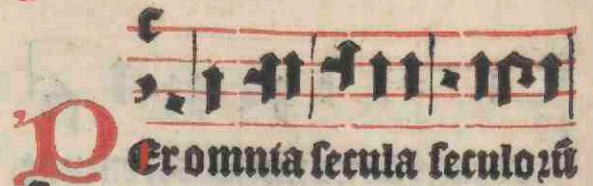 PEr omnia ſecula ſeculoꝝū